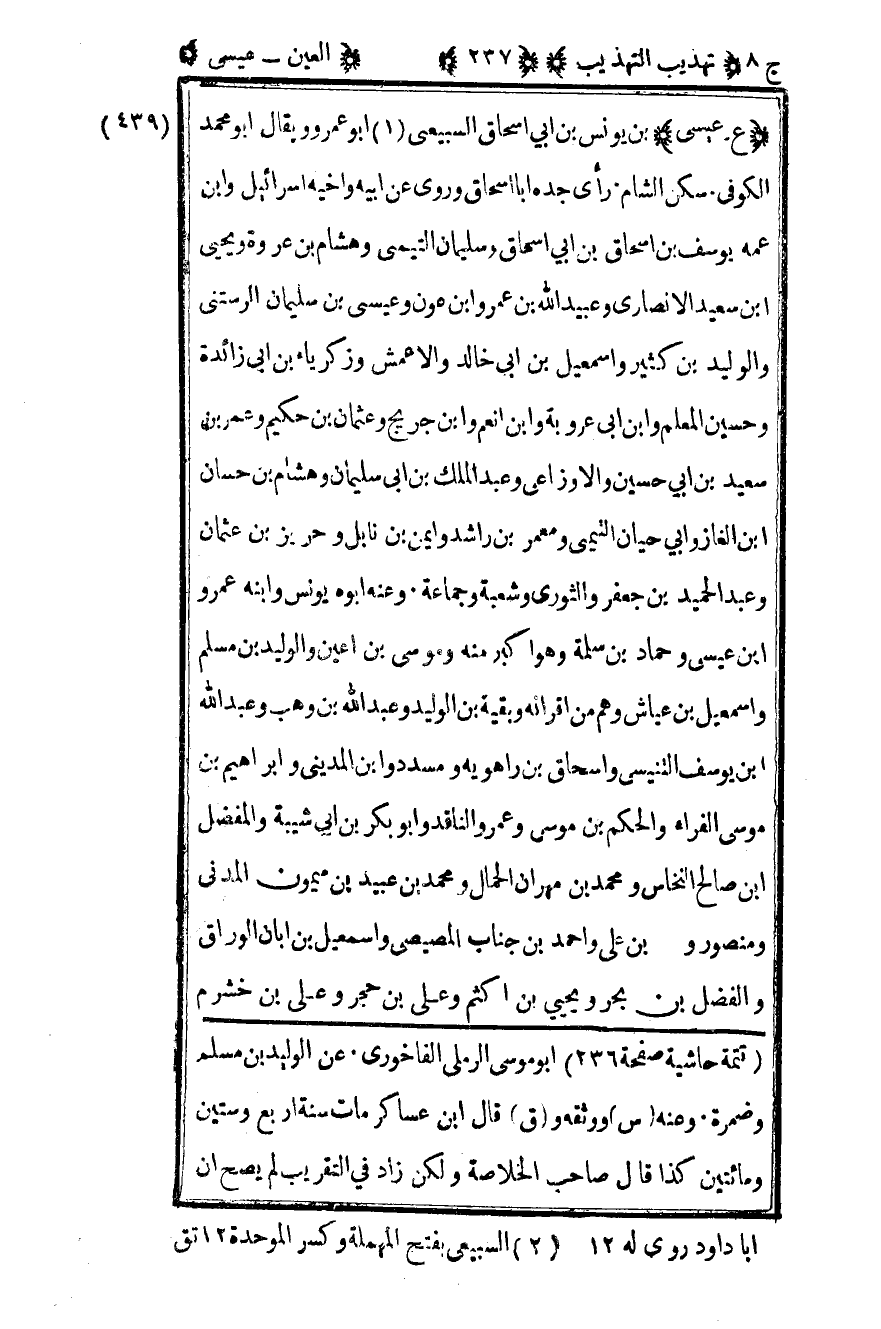 ج ٨ ﴿ تهذيب التهذيب ﴾ ﴿ ٢٣٧ ﴾ ﴿ العين ــ عيسى ﴾
﴿ ع . عيسى ﴾ بن يونس بن ابي اسحاق السبيعى (١) ابو عمرو ويقال ابو محمد (٤٣٩)
الكوفى . سكن الشام . رأى جده ابا اسحاق وروى عن ابيه واخيه اسرائيل وابن
عمه يوسف بن اسحاق بن ابي اسحاق وسليمان التيمى وهشام بن عروة ويحيى
ابن سعيد الانصارى وعبيد الله بن عمر وابن عون وعيسى بن سليمان الرستنى
والوليد بن كثير واسمعيل بن ابي خالد والاعمش وزكرياء بن ابى زائدة
وحسين المعلم وابن ابى عروبة وابن انعم وابن جريج وعثمان بن حكيم وعمر بن
سعيد بن ابي حسين والاوزاعى وعبد الملك بن ابى سليمان وهشام بن حسان
ابن الغاز وابي حيان التيمى ومعمر بن راشد وايمن بن نابل وحريز بن عثمان
وعبد الحميد بن جعفر والثورى وشعبة وجماعة . وعنه ابوه يونس وابنه عمرو
ابن عيسى وحماد بن سلمة وهو اكبر منه وموسى بن اعين والوليد بن مسلم
واسمعيل بن عياش وهم من اقرانه وبقية بن الوليد وعبد الله بن وهب وعبد الله
ابن يوسف التنيسى واسحاق بن راهويه ومسدد وابن المدينى وابراهيم بن
موسى الفراء والحكم بن موسى وعمرو الناقد وابو بكر بن ابي شيبة والمفضل
ابن صالح النخاس ومحمد بن مهران الحمال ومحمد بن عبيد بن ميمون المدنى
ومنصور و بن على واحمد بن جناب المصيصى واسمعيل بن ابان الوراق
والفضل بن بحر ويحيي بن اكثم وعلى بن حجر وعلى بن خشرم
( تتمة حاشية صفحة ٢٣٦) ابو موسى الرملى الفاخورى . عن الوليد بن مسلم
وضمرة . وعنه (س) ووثقه و (ق) قال ابن عساكر مات سنة اربع وستين
ومائتين كذا قال صاحب الخلاصة ولكن زاد في التقريب لم يصح ان
ابا داود روى له ١٢ (٢) السبيعى بفتح المهملة وكسر الموحدة ١٢ تق